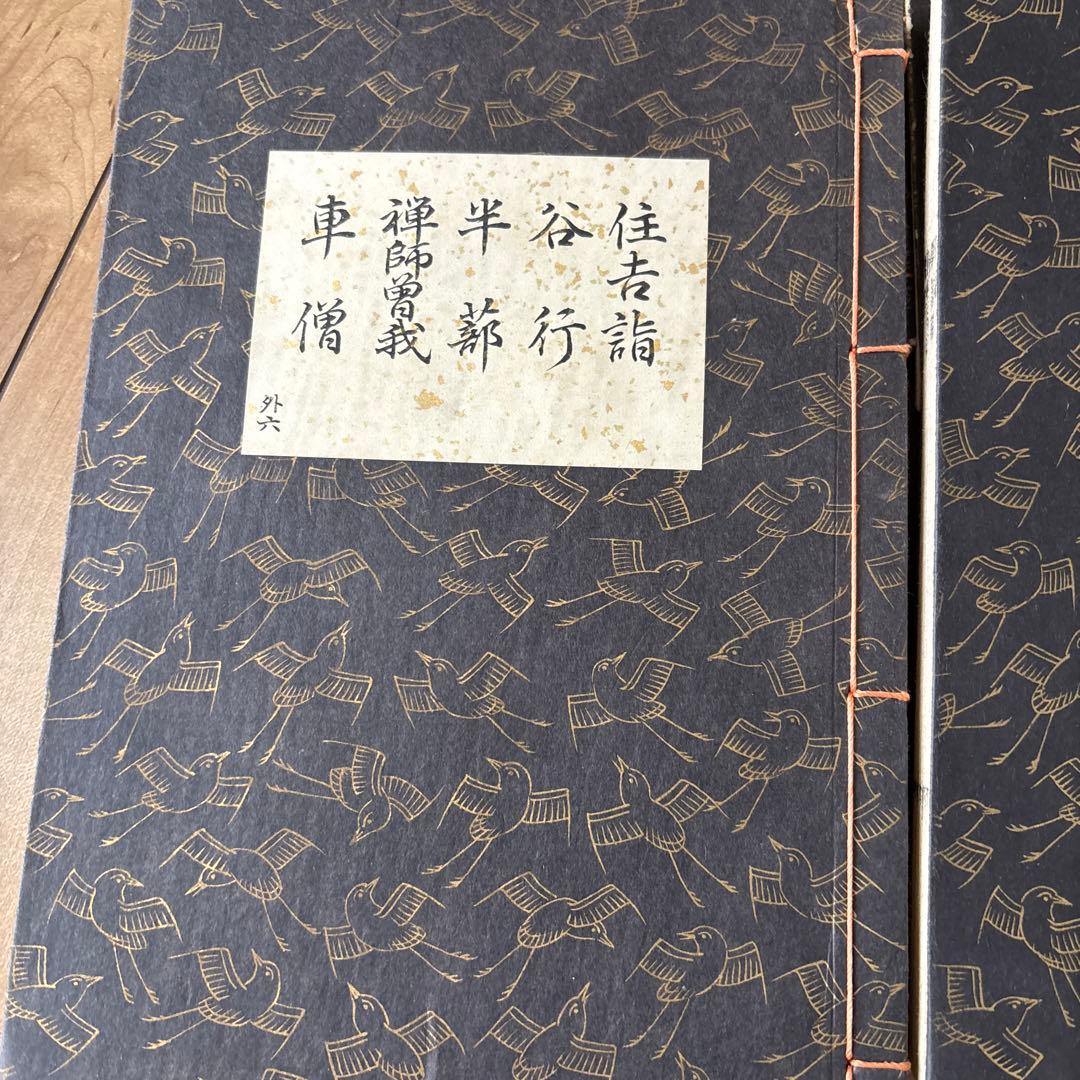 住吉詣
谷行
半蔀
禅師曽我
車僧
外六